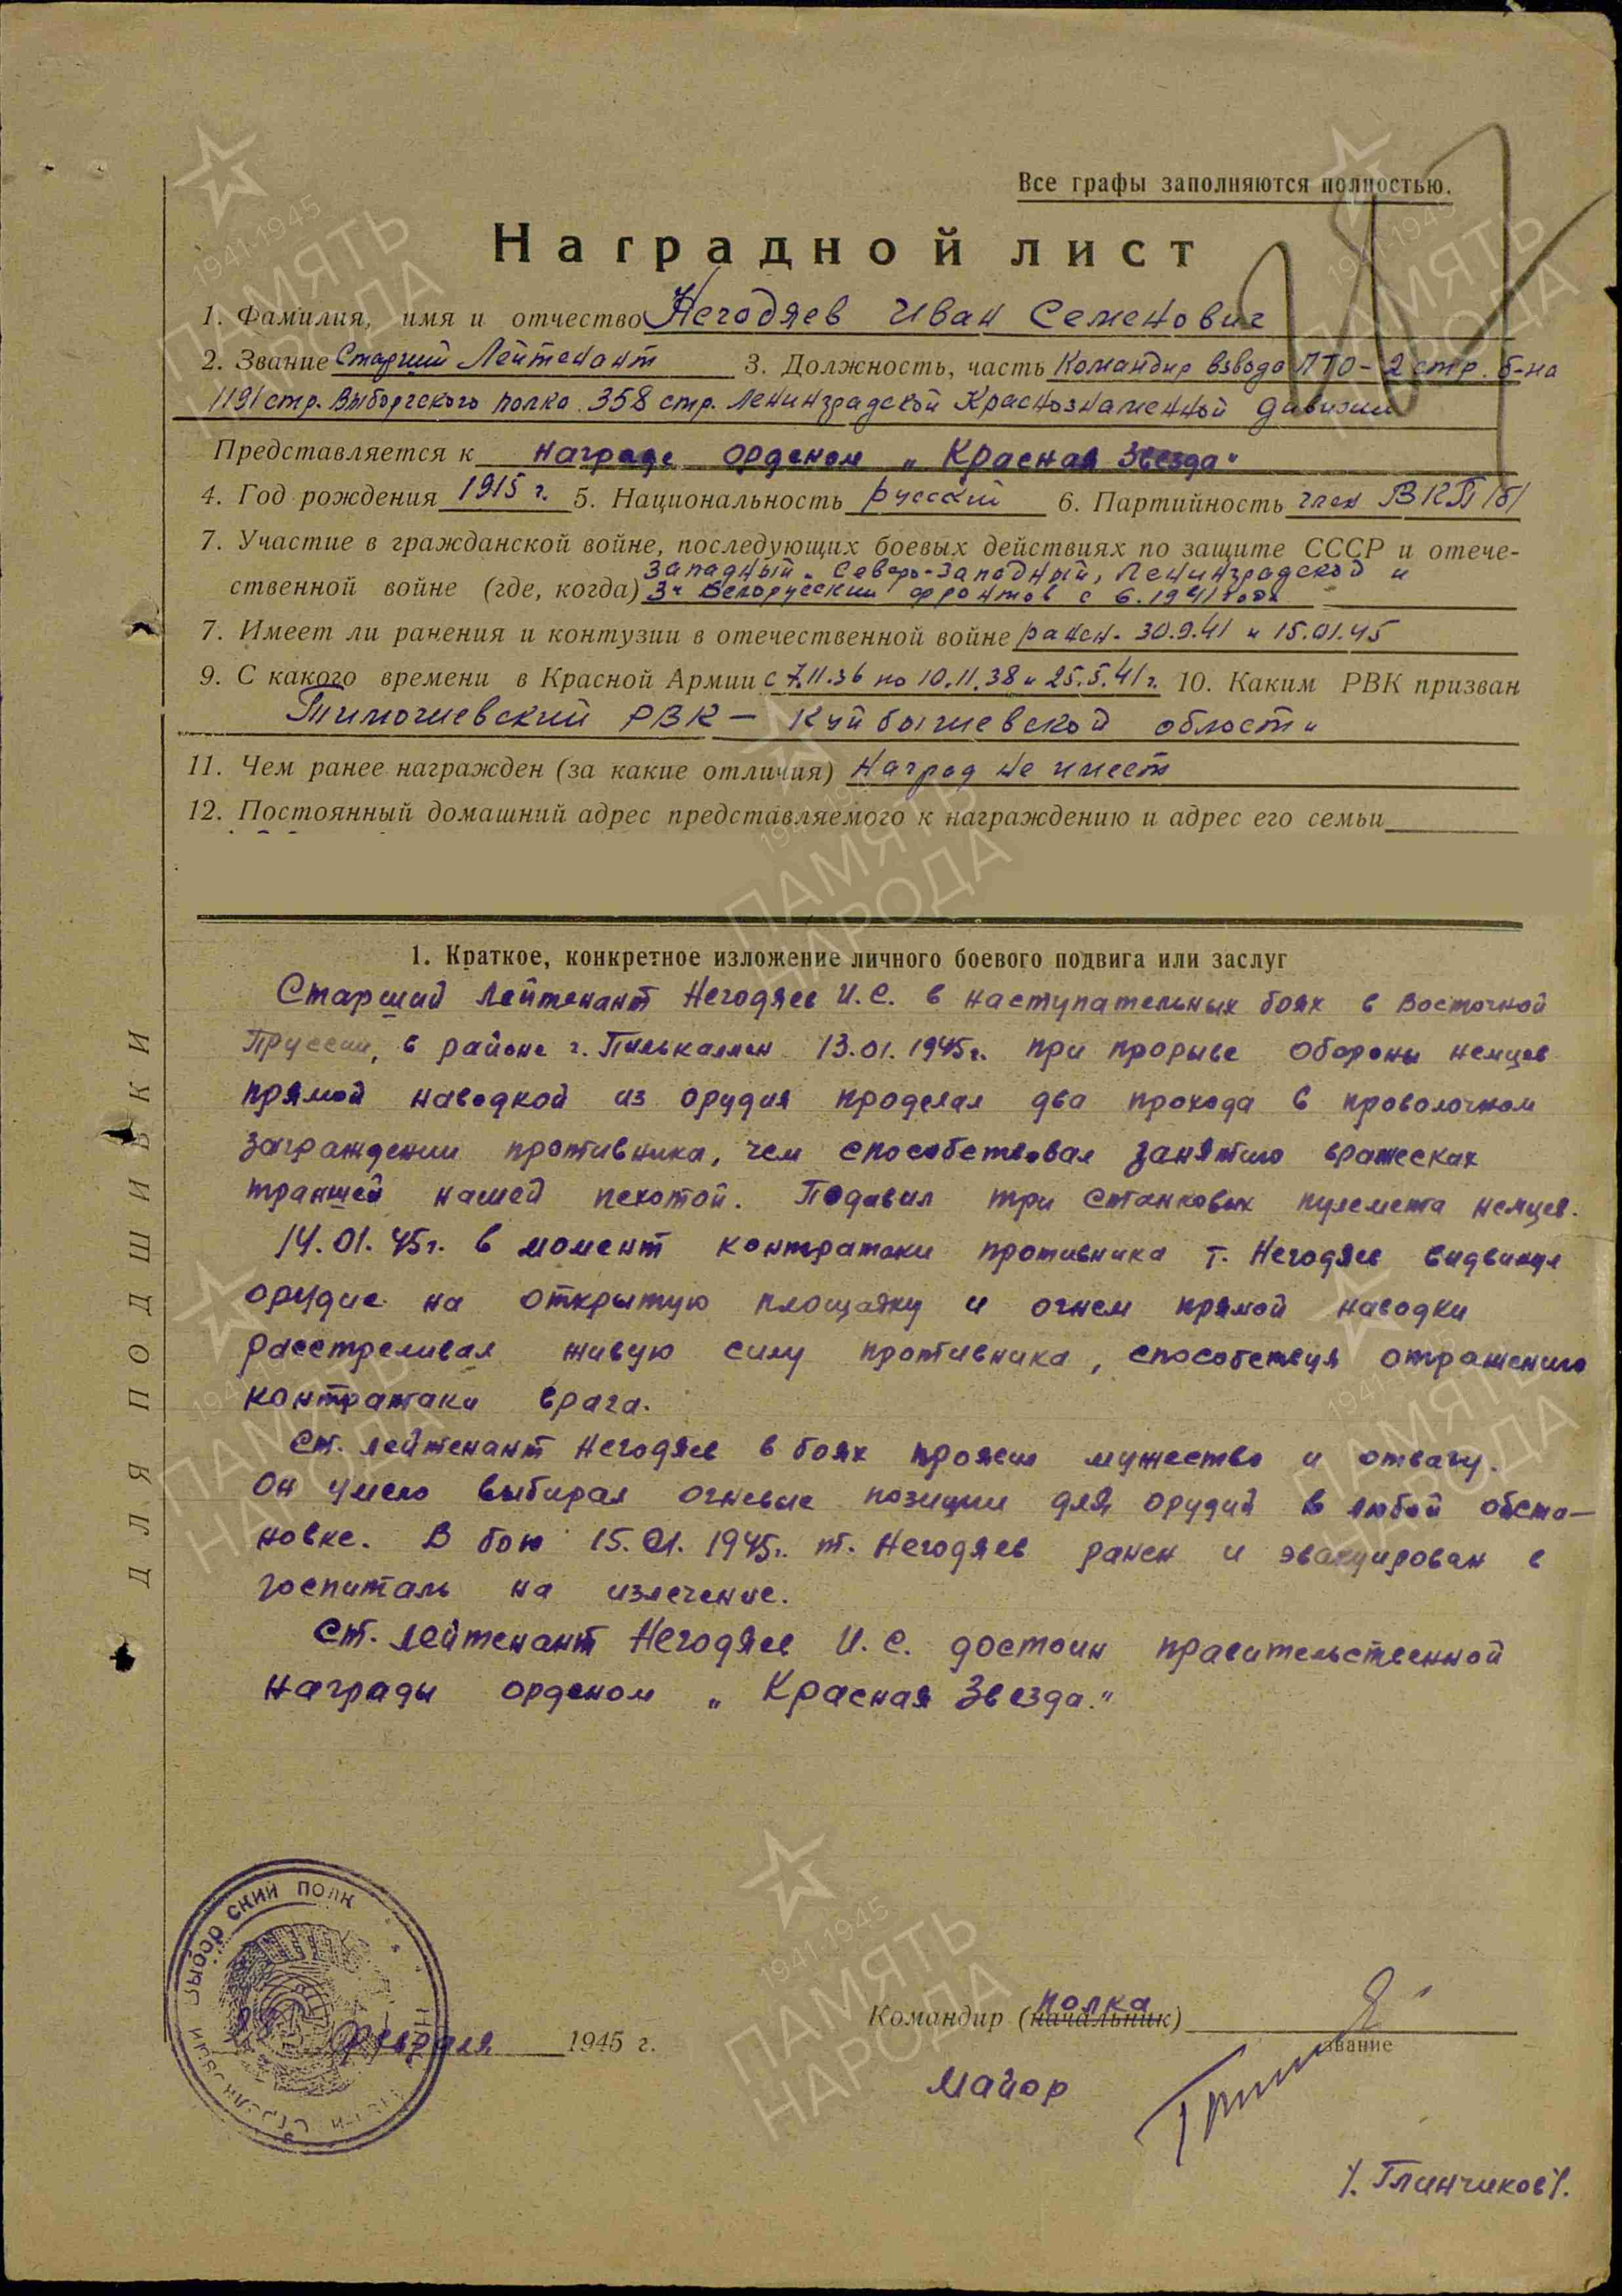 Все графы заполняются полностью.
Наградной лист
1. Фамилия, имя и отчество Негодяев Иван Семенович
2. Звание Старший Лейтенант 3. Должность, часть Командир взвода ПТО - 2 стр. б-на
1191 стр. Выборгского полка 358 стр. Ленинградской Краснознаменной дивизии
Представляется к награде орденом „Красная Звезда"
4. Год рождения 1915 г. 5. Национальность русский 6. Партийность член ВКП/б/
7. Участие в гражданской войне, последующих боевых действиях по защите СССР и отече-
Западный, Северо-Западный, Ленинградской и
ственной войне (где, когда) 3й Белорусский фронтов с 6.1941 года
7. Имеет ли ранения и контузии в отечественной войне ранен. 30.9.41 и 15.01.45
9. С какого времени в Красной Армии с 7.11.36 по 10.11.38 и 25.5.41г. 10. Каким РВК призван
РВК - Куйбышевской области
11. Чем ранее награжден (за какие отличия) Наград не имеет
12. Постоянный домашний адрес представляемого к награждению и адрес его семьи
1. Краткое, конкретное изложение личного боевого подвига или заслуг
Старший Лейтенант Негодяев И.С. в наступательных боях в Восточной
Пруссии, в районе г. Пилькаллен 13.01.1945г. при прорыве обороны немцев
прямой наводкой из орудия проделал два прохода в проволочном
заграждении противника, чем способствовал занятию вражеских
траншей нашей пехотой. Подавил три станковых пулемета немцев.
14.01.45г. в момент контратаки противника т. Негодяев выдвинул
орудие на открытую площадку и огнем прямой наводки
расстреливал живую силу противника, способствуя отражению
контратаки врага.
Ст. лейтенант Негодяев в боях проявил мужество и отвагу.
Он умело выбирал огневые позиции для орудий в любой обста-
новке. В бою 15.01.1945г. т. Негодяев ранен и эвакуирован в
госпиталь на излечение.
Ст. лейтенант Негодяев И.С. достоин правительственной
награды орденом „Красная Звезда."
ДЛЯ ПОДШИВКИ
Выборгский полк
февраля 1945 г.
полка
Командир (начальник)
звание
Майор
/. Глинчиков/.
1941-1945
ПАМЯТЬ
НАРОДА
1941-1945
ПАМЯТЬ
НАРОДА
1941-1945
ПАМЯТЬ
НАРОДА
1941-1945
ПАМЯТЬ
НАРОДА
1941-1945
ПАМЯТЬ
НАРОДА
1941-1945
ПАМЯТЬ
НАРОДА